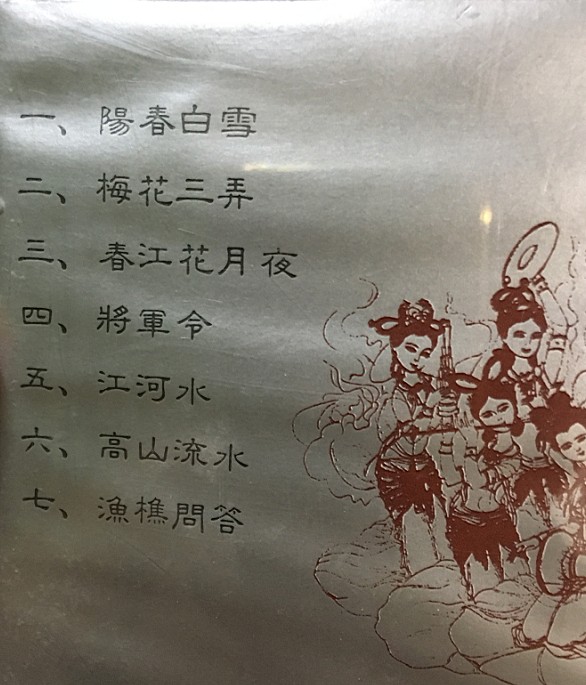 一、陽春白雪
二、梅花三弄
三、春江花月夜
四、將軍令
五、江河水
六、高山流水
七、漁樵問答